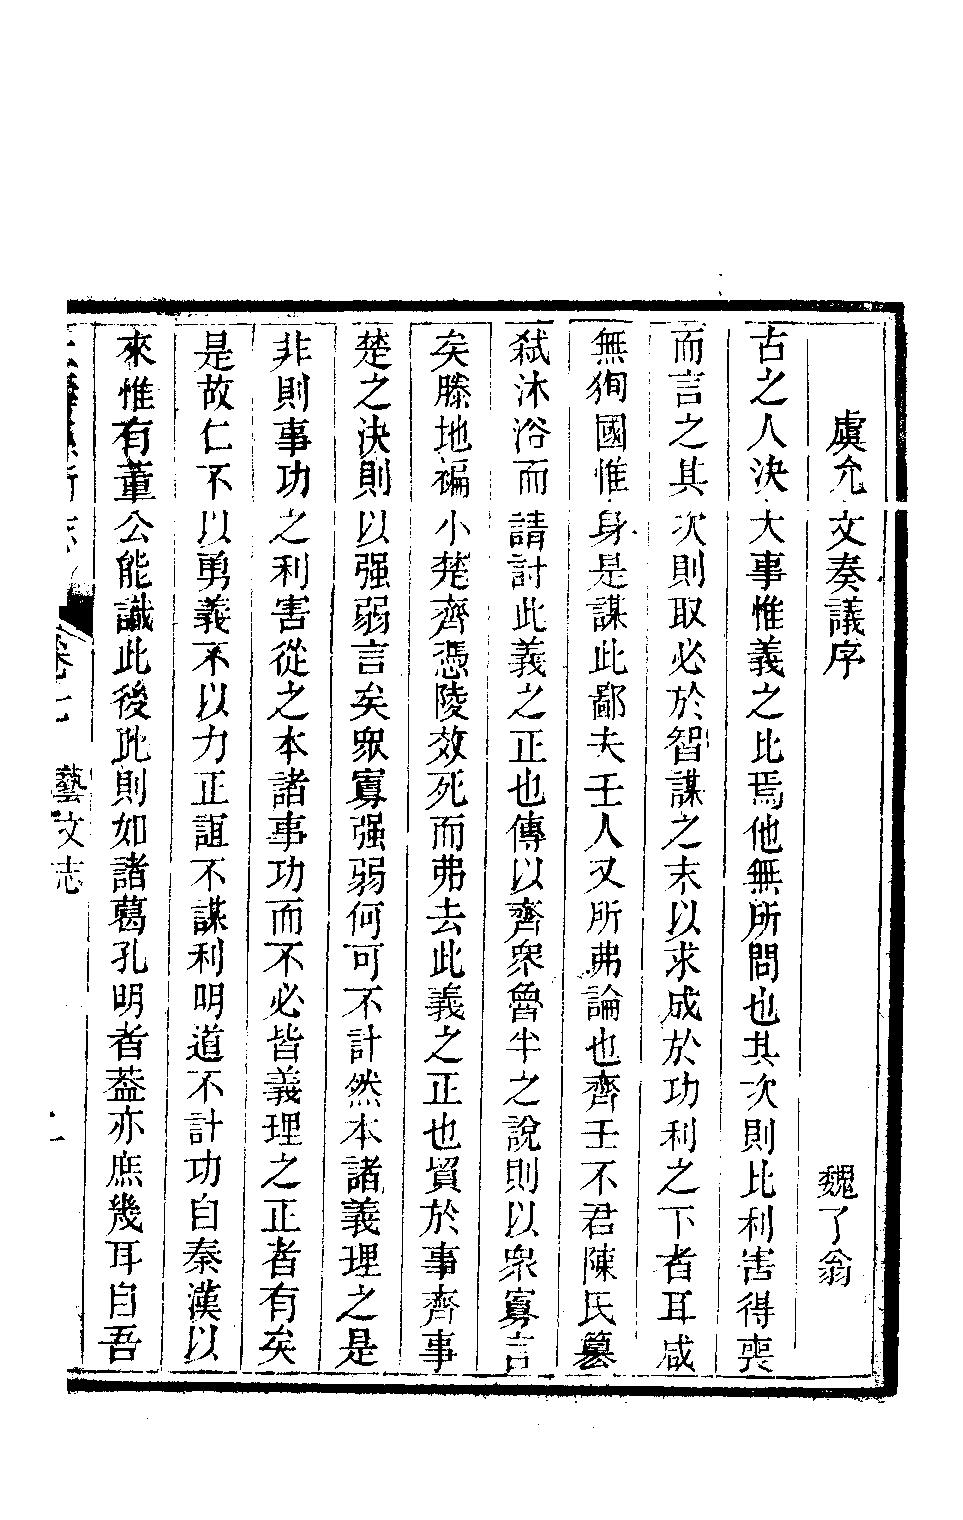 虞允文奏議序 魏了翁
古之人決大事惟義之比焉他無所問也其次則比利害得喪
而言之其次則取必於智謀之末以求成於功利之下者耳咸
無徇國惟身是謀此鄙夫壬人又所弗論也齊王不君陳氏簒
弑沐浴而請討此義之正也傳以齊衆魯半之說則以衆寡言
矣滕地褊小楚齊憑陵效死而弗去此義之正也貿於事齊事
楚之決則以强弱言矣衆寡强弱何可不計然本諸義理之是
非則事功之利害從之本諸事功而不必皆義理之正者有矣
是故仁不以勇義不以力正誼不謀利明道不計功自秦漢以
來惟有董公能識此後此則如諸葛孔明者葢亦庶幾耳自吾
志 卷七 藝文志